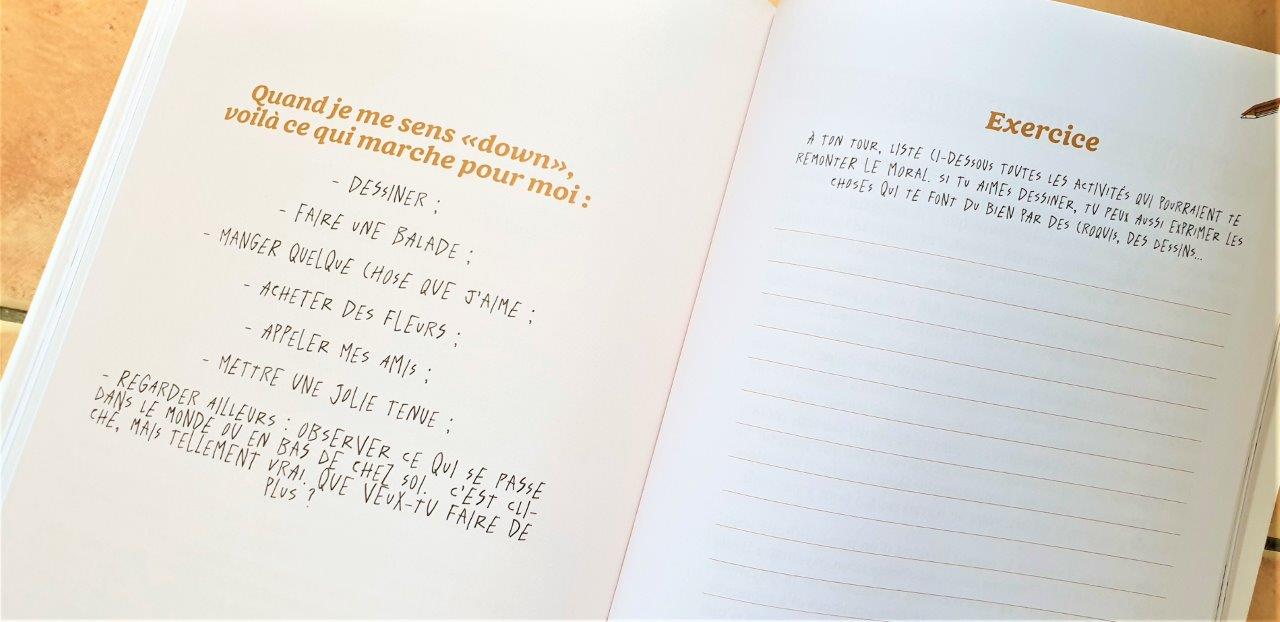 Quand je me sens «down»,
voilà ce qui marche pour moi :
- DESSINER ;
- FAIRE UNE BALADE ;
- MANGER QUELQUE CHOSE QUE J'AIME ;
- ACHETER DES FLEURS ;
- APPELER MES AMIS ;
- METTRE UNE JOLIE TENUE ;
- REGARDER AILLEURS : OBSERVER CE QUI SE PASSE
DANS LE MONDE OU EN BAS DE CHEZ SOI. C'EST CLI-
CHÉ, MAIS TELLEMENT VRAI. QUE VEUX-TU FAIRE DE
PLUS ?
Exercice
À TON TOUR, LISTE CI-DESSOUS TOUTES LES ACTIVITÉS QUI POURRAIENT TE
REMONTER LE MORAL. SI TU AIMES DESSINER, TU PEUX AUSSI EXPRIMER LES
CHOSES QUI TE FONT DU BIEN PAR DES CROQUIS, DES DESSINS...